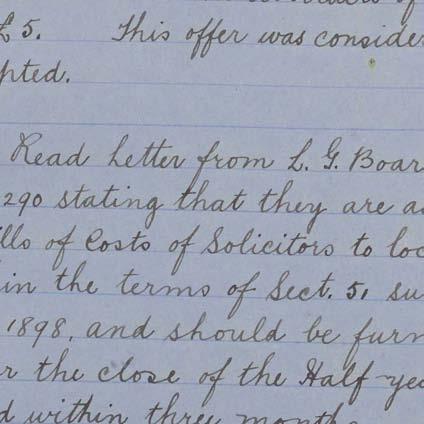 £5. This offer was consider
pted.
Read Letter from L. G. Boar
290 stating that they are a
lls of Costs of Solicitors to loc
in the terms of Sect. 51 su
1898, and should be furn
r the close of the Half-yea
d within three months